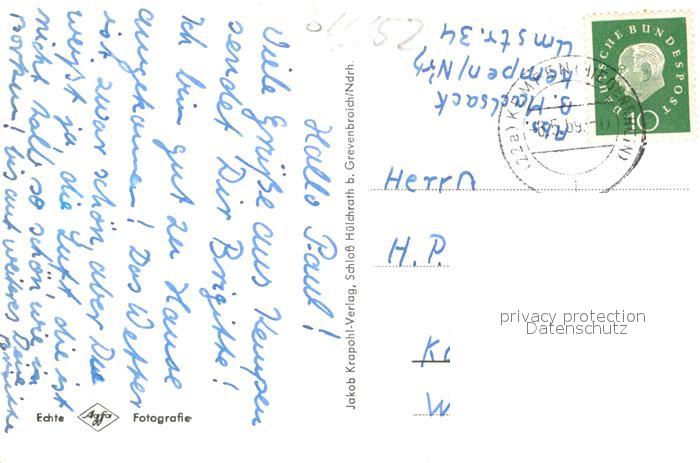 Hallo Paul!
Viele Grüße aus Kempen
sendet Dir Brigitte!
Ich bin gut zu Hause
angekommen! Das Wetter
ist zwar schön, aber Du
weißt ja die Luft die ist
nicht halb so schön, wie in
Borkum! bis auf weiteres Deine
Brigitte
Echte Agfa Fotografie
Jakob Krapohl-Verlag, Schloß Hülchrath b. Grevenbroich/Ndrh.
Abs.
Kempen/Ndrh
Umstr. 34
DEUTSCHE BUNDESPOST
10
(22a) KEMPEN (NIEDERRHEIN)
Herrn
H. P.
Kr
W
privacy protection
Datenschutz